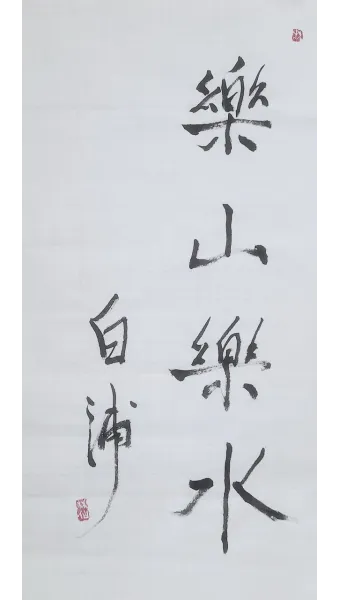 樂山樂水
白浦